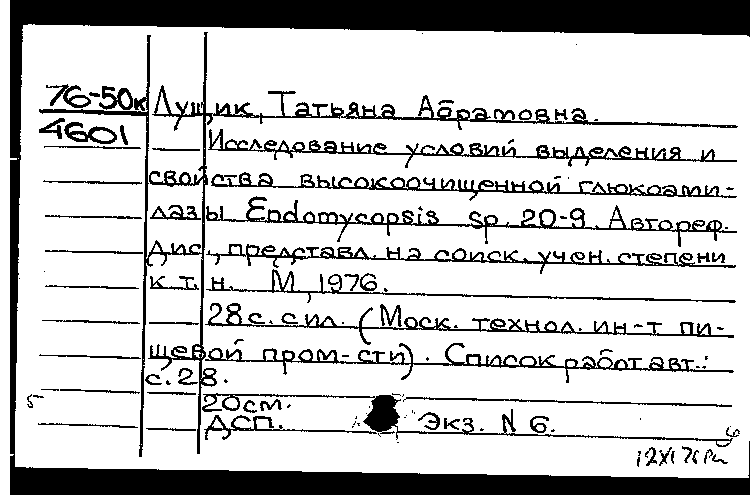 76-50к Лущик, Татьяна Абрамовна.
4601
Исследование условий выделения и
свойства высокоочищенной глюкоами-
лазы Endomycopsis sp. 20-9. Автореф.
дис., представл. на соиск. учен. степени
к.т.н. М., 1976.
28 с. с ил. (Моск. технол. ин-т пи-
щевой пром-сти). Список работ авт.:
с. 28.
20см.
5 ДСП. Экз. N 6.